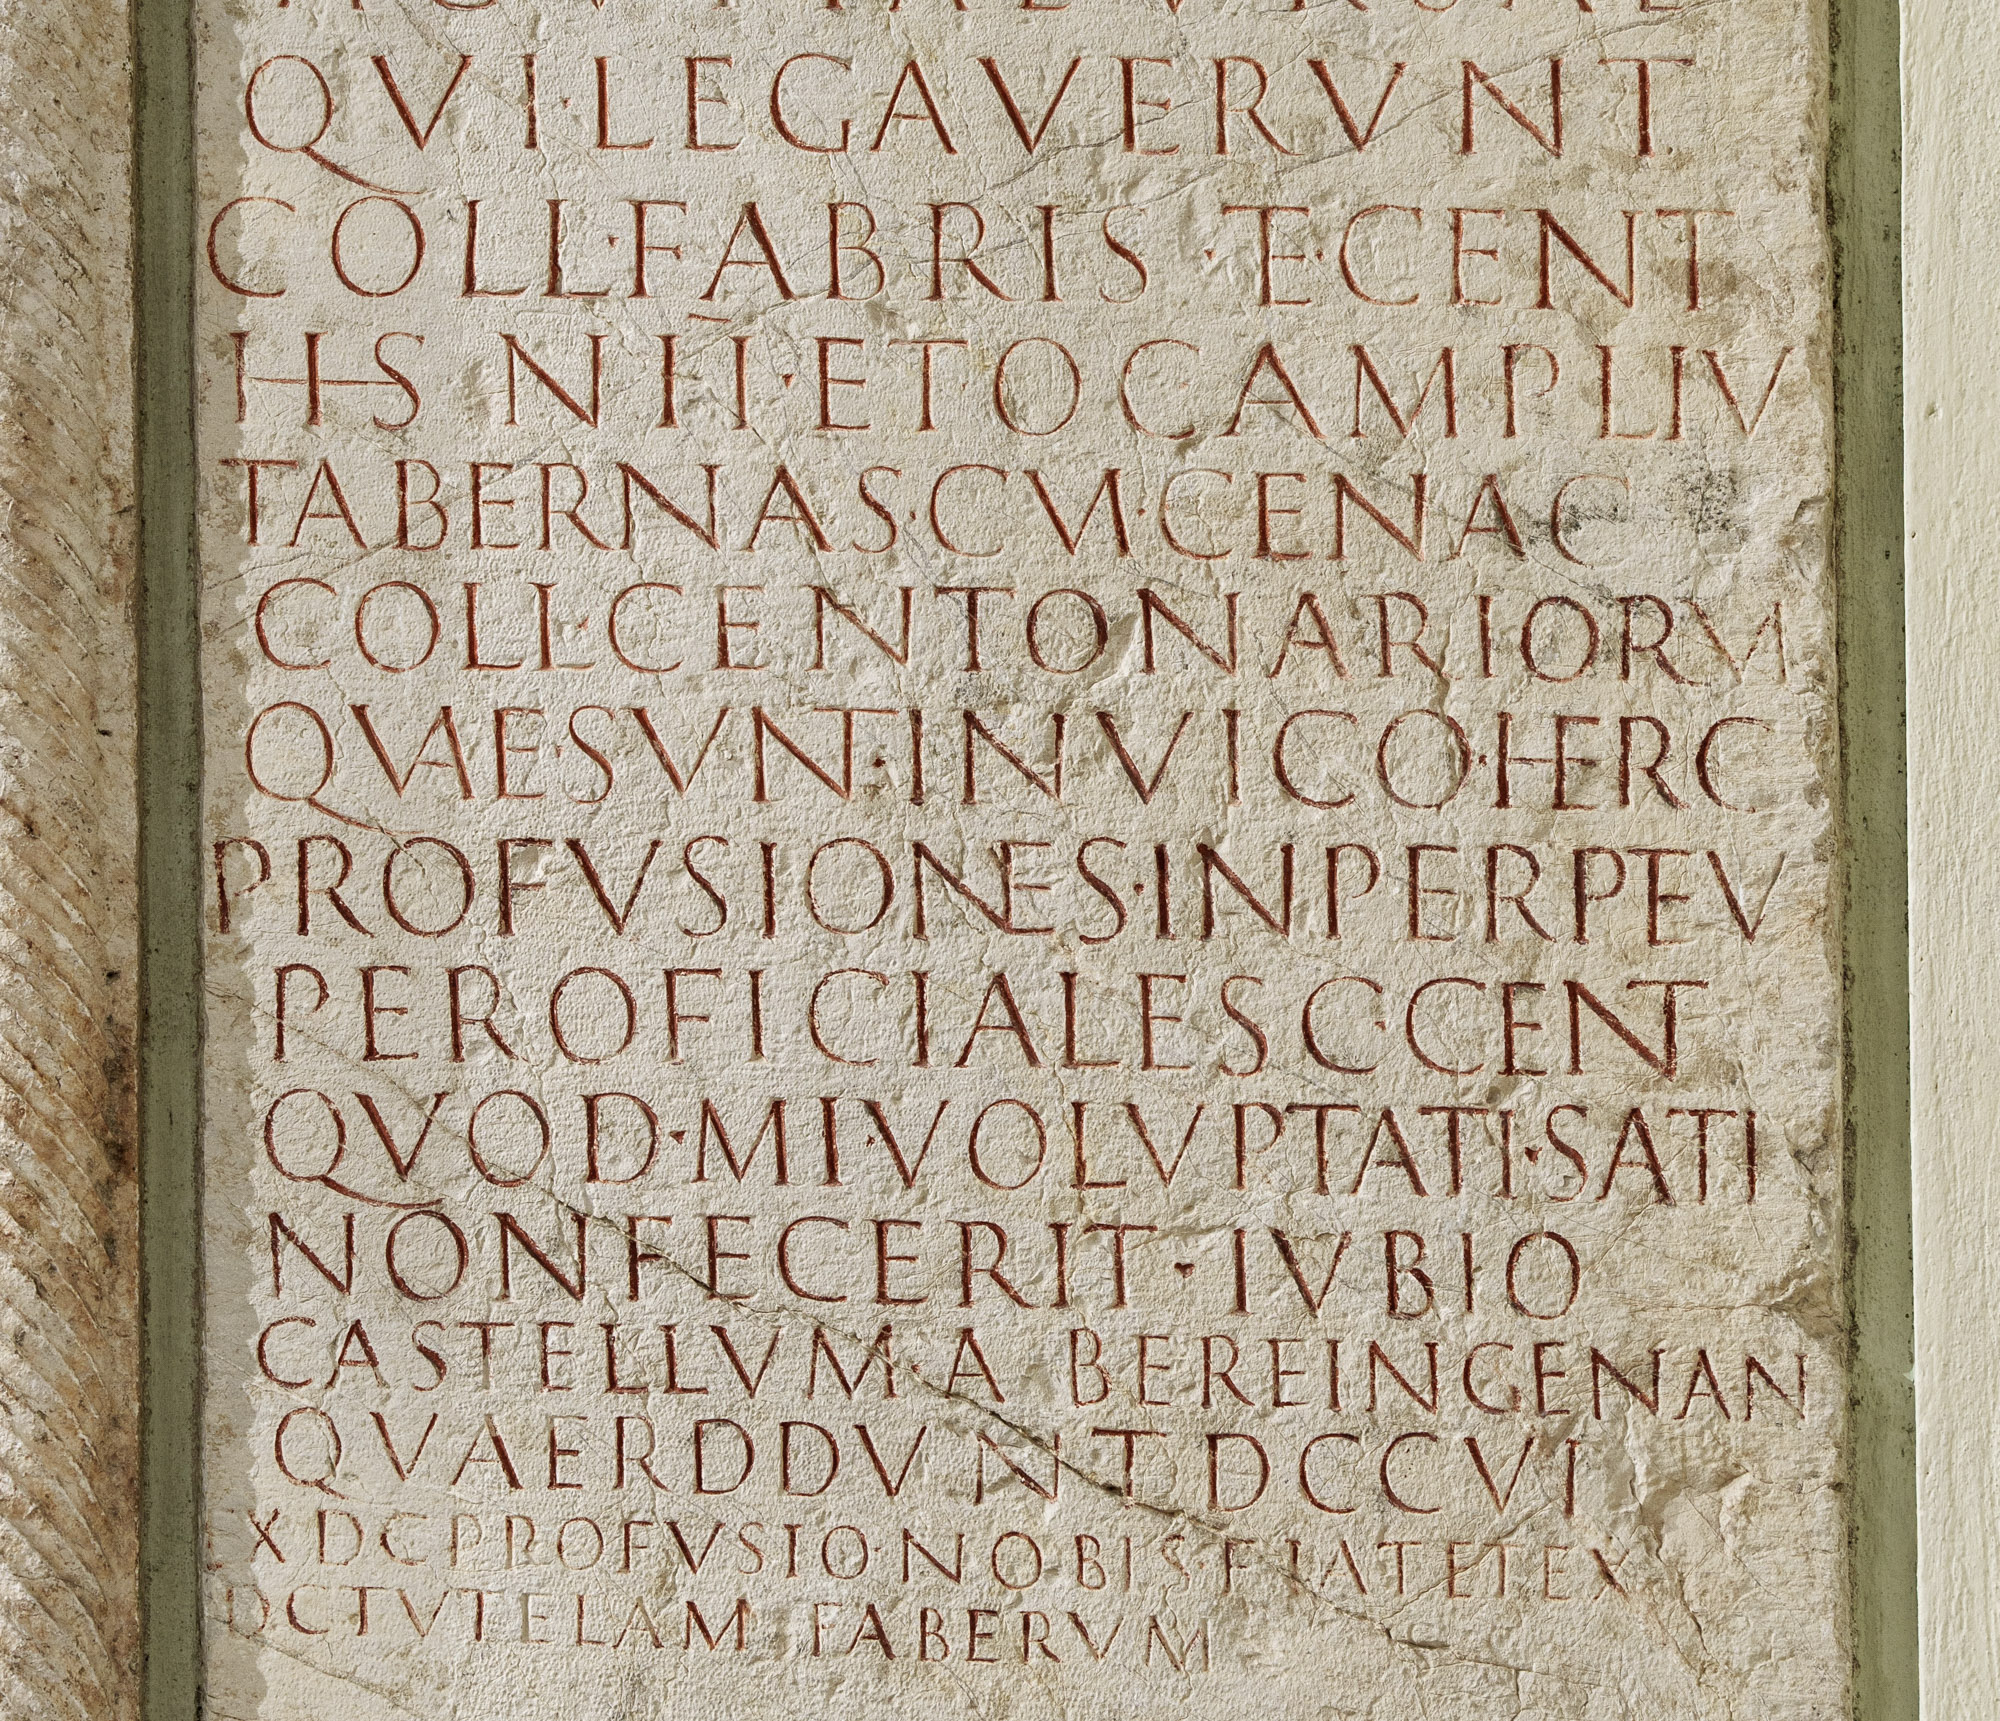 QVI·LEGAVERVNT
COLL·FABRIS·ET·CENT
HS N II·ET OC AMPLIV
TABERNAS·CVM·CENAC
COLL·CENTONARIORVM
QVAE·SVNT·IN VICO·HERC
PROFVSIONES·IN PERPETV
PER OFICIALES C·CENT
QVOD·MI·VOLVPTATI·SATI
NON FECERIT·IVBIO
CASTELLVM·A BEREINGENAN
QVAERDDVNT DCCVI
EX DC PROFVSIO·NOBIS·FIAT ET EX
DC TVTELAM FABERVM